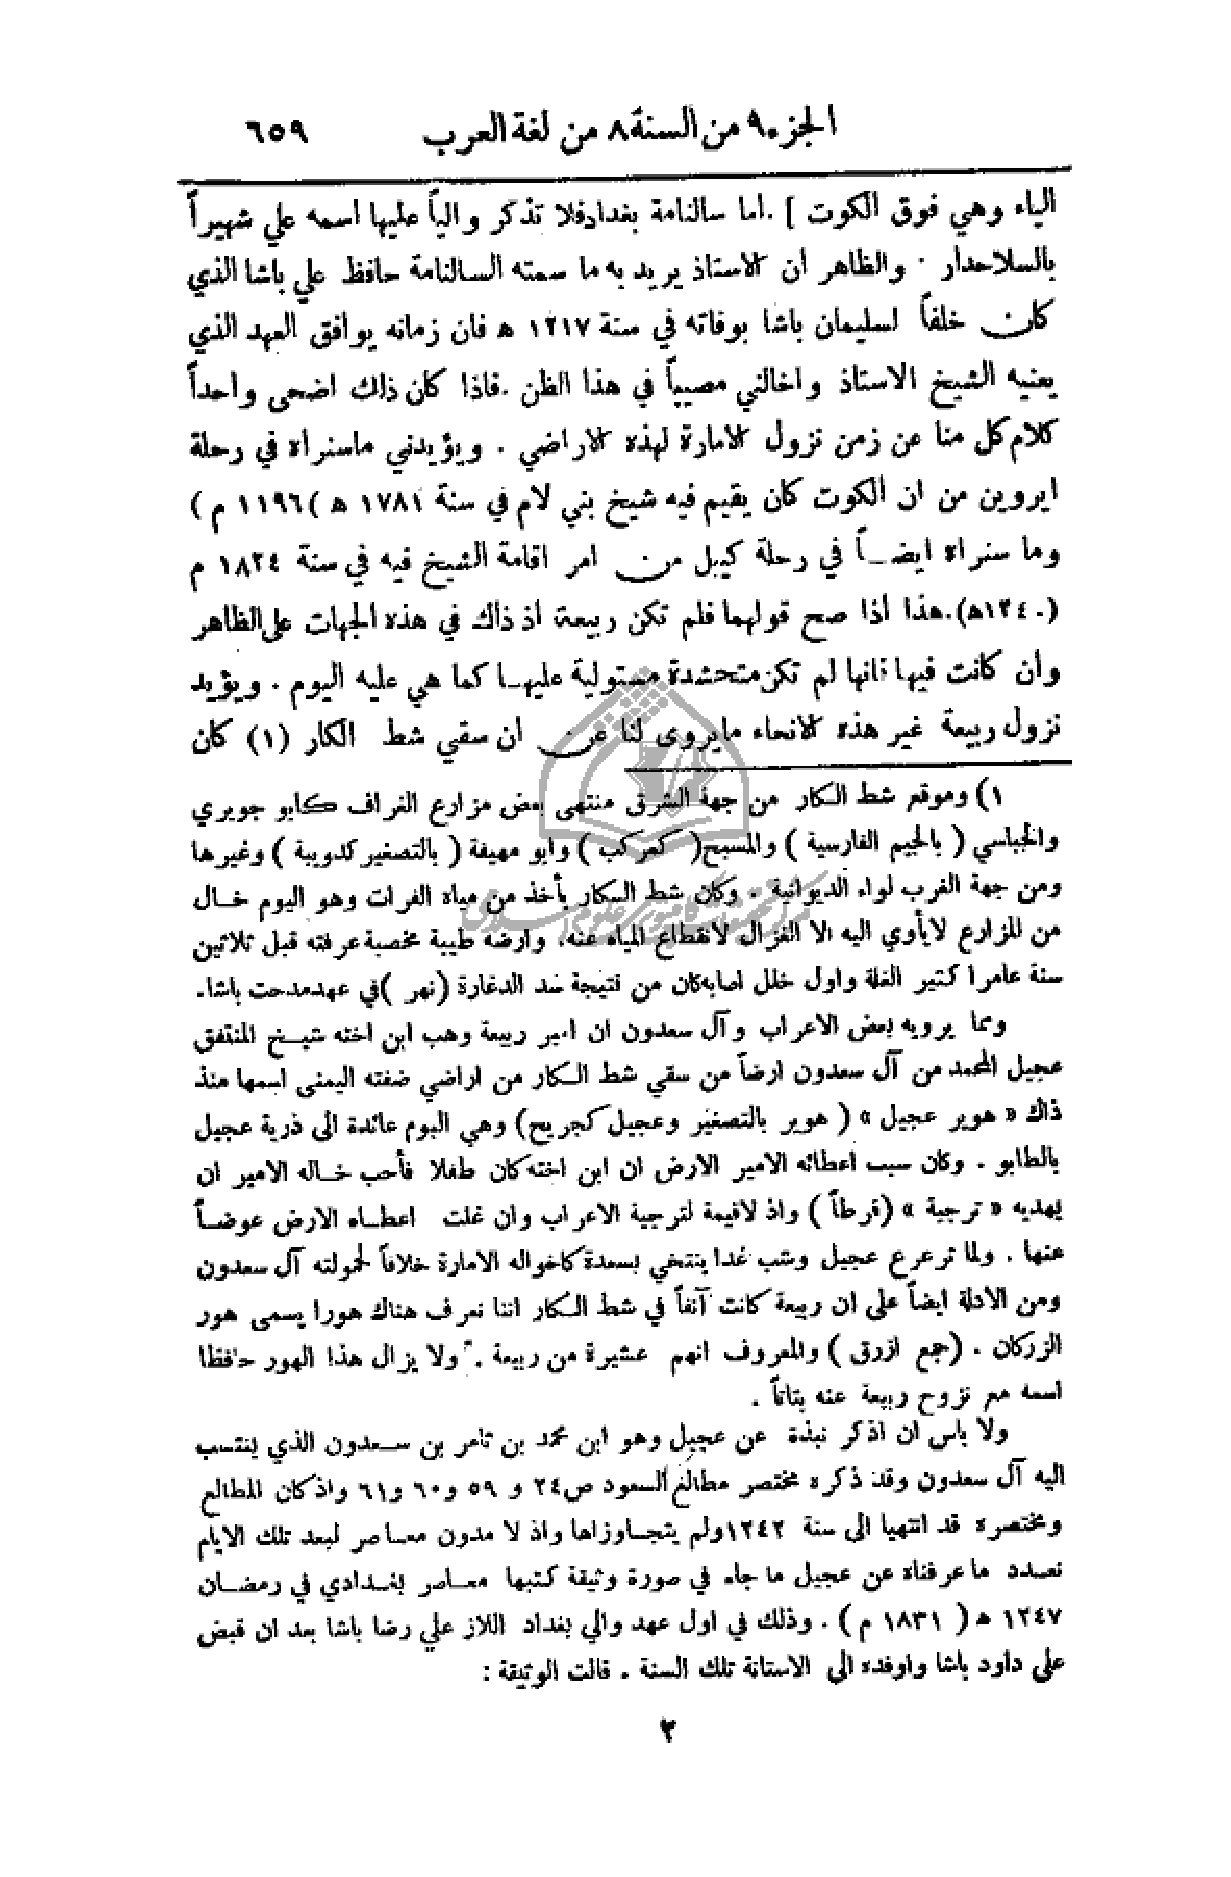 الجزء ٩ من السنة ٨ من لغة العرب ٦٥٩
الياء وهي فوق الكوت ] . اما سالنامة بغداد فلا تذكر والياً عليها اسمه علي شهيراً
بالسلاحدار . والظاهر ان الاستاذ يريد به ما سمته السالنامة حافظ علي باشا الذي
كان خلفاً لسليمان باشا بوفاته في سنة ١٢١٧ ه فان زمانه يوافق العهد الذي
يعنيه الشيخ الاستاذ واخالني مصيباً في هذا الظن . فاذا كان ذلك اضحى واحداً
كلام كل منا عن زمن نزول الامارة لهذه الاراضي . ويؤيدني ماسنراه في رحلة
ايروين من ان الكوت كان يقيم فيه شيخ بني لام في سنة ١٧٨١ ه ) ١١٩٦ م )
وما سنراه ايضاً في رحلة كيبل من امر اقامة الشيخ فيه في سنة ١٨٢٤ م
(١٢٤٠ه). هذا اذا صح قولهما فلم تكن ربيعة اذ ذاك في هذه الجهات على الظاهر
وان كانت فيها فانها لم تكن متحشدة مستولية عليها كما هي عليه اليوم . ويؤيد
نزول ربيعة غير هذه الانحاء مايروى لنا عن ان سقي شط الكار (١) كان
١) وموقع شط الكار من جهة الشرق منتهى بعض مزارع الغراف كابو جويري
والخباسي ( بالجيم الفارسية ) والمسبح ( كمركب ) وابو مهيفة ( بالتصغير كدويبة ) وغيرها
ومن جهة الغرب لواء الديوانية . وكان شط الكار يأخذ من مياه الفرات وهو اليوم خال
من المزارع لايأوي اليه الا الغزال لانقطاع المياه عنه، وارضه طيبة مخصبة عرفته قبل ثلاثين
سنة عامرا كثير الغلة واول خلل اصابه كان من نتيجة سد الدغارة (نهر ) في عهد مدحت باشا.
ومما يرويه بعض الاعراب وآل سعدون ان امير ربيعة وهب ابن اخته شيخ المنتفق
عجيل المحمد من آل سعدون ارضاً من سقي شط الكار من اراضي ضفته اليمنى اسمها منذ
ذاك « هوير عجيل » ( هوير بالتصغير وعجيل كجريح) وهي اليوم عائدة الى ذرية عجيل
بالطابو . وكان سبب اعطائه الامير الارض ان ابن اخته كان طفلا فأحب خاله الامير ان
يهديه « ترجية » (قرطاً ) واذ لاقيمة لترجية الاعراب وان غلت اعطاه الارض عوضاً
عنها . ولما ترعرع عجيل وشب غدا ينتخي بسعدة كاخواله الامارة خلافاً لحمولته آل سعدون
ومن الادلة ايضاً على ان ربيعة كانت آنفاً في شط الكار اننا نعرف هناك هورا يسمى هور
الزركان . (جمع ازرق ) والمعروف انهم عشيرة من ربيعة . ولا يزال هذا الهور حافظا
اسمه مع نزوح ربيعة عنه بتاتاً .
ولا باس ان اذكر نبذة عن عجيل وهو ابن محمد بن ثامر بن سعدون الذي ينتسب
اليه آل سعدون وقد ذكره مختصر مطالع السعود ص٢٤ و ٥٩ و ٦٠ و ٦١ واذ كان المطالع
ومختصره قد انتهيا الى سنة ١٢٤٢ ولم يتجاوزاها واذ لا مدون معاصر لبعد تلك الايام
نصدد ما عرفناه عن عجيل ما جاء في صورة وثيقة كتبها معاصر بغدادي في رمضان
١٢٤٧ ه ( ١٨٣١ م ) . وذلك في اول عهد والي بغداد اللاز علي رضا باشا بعد ان قبض
على داود باشا واوفده الى الاستانة تلك السنة . قالت الوثيقة :
٢